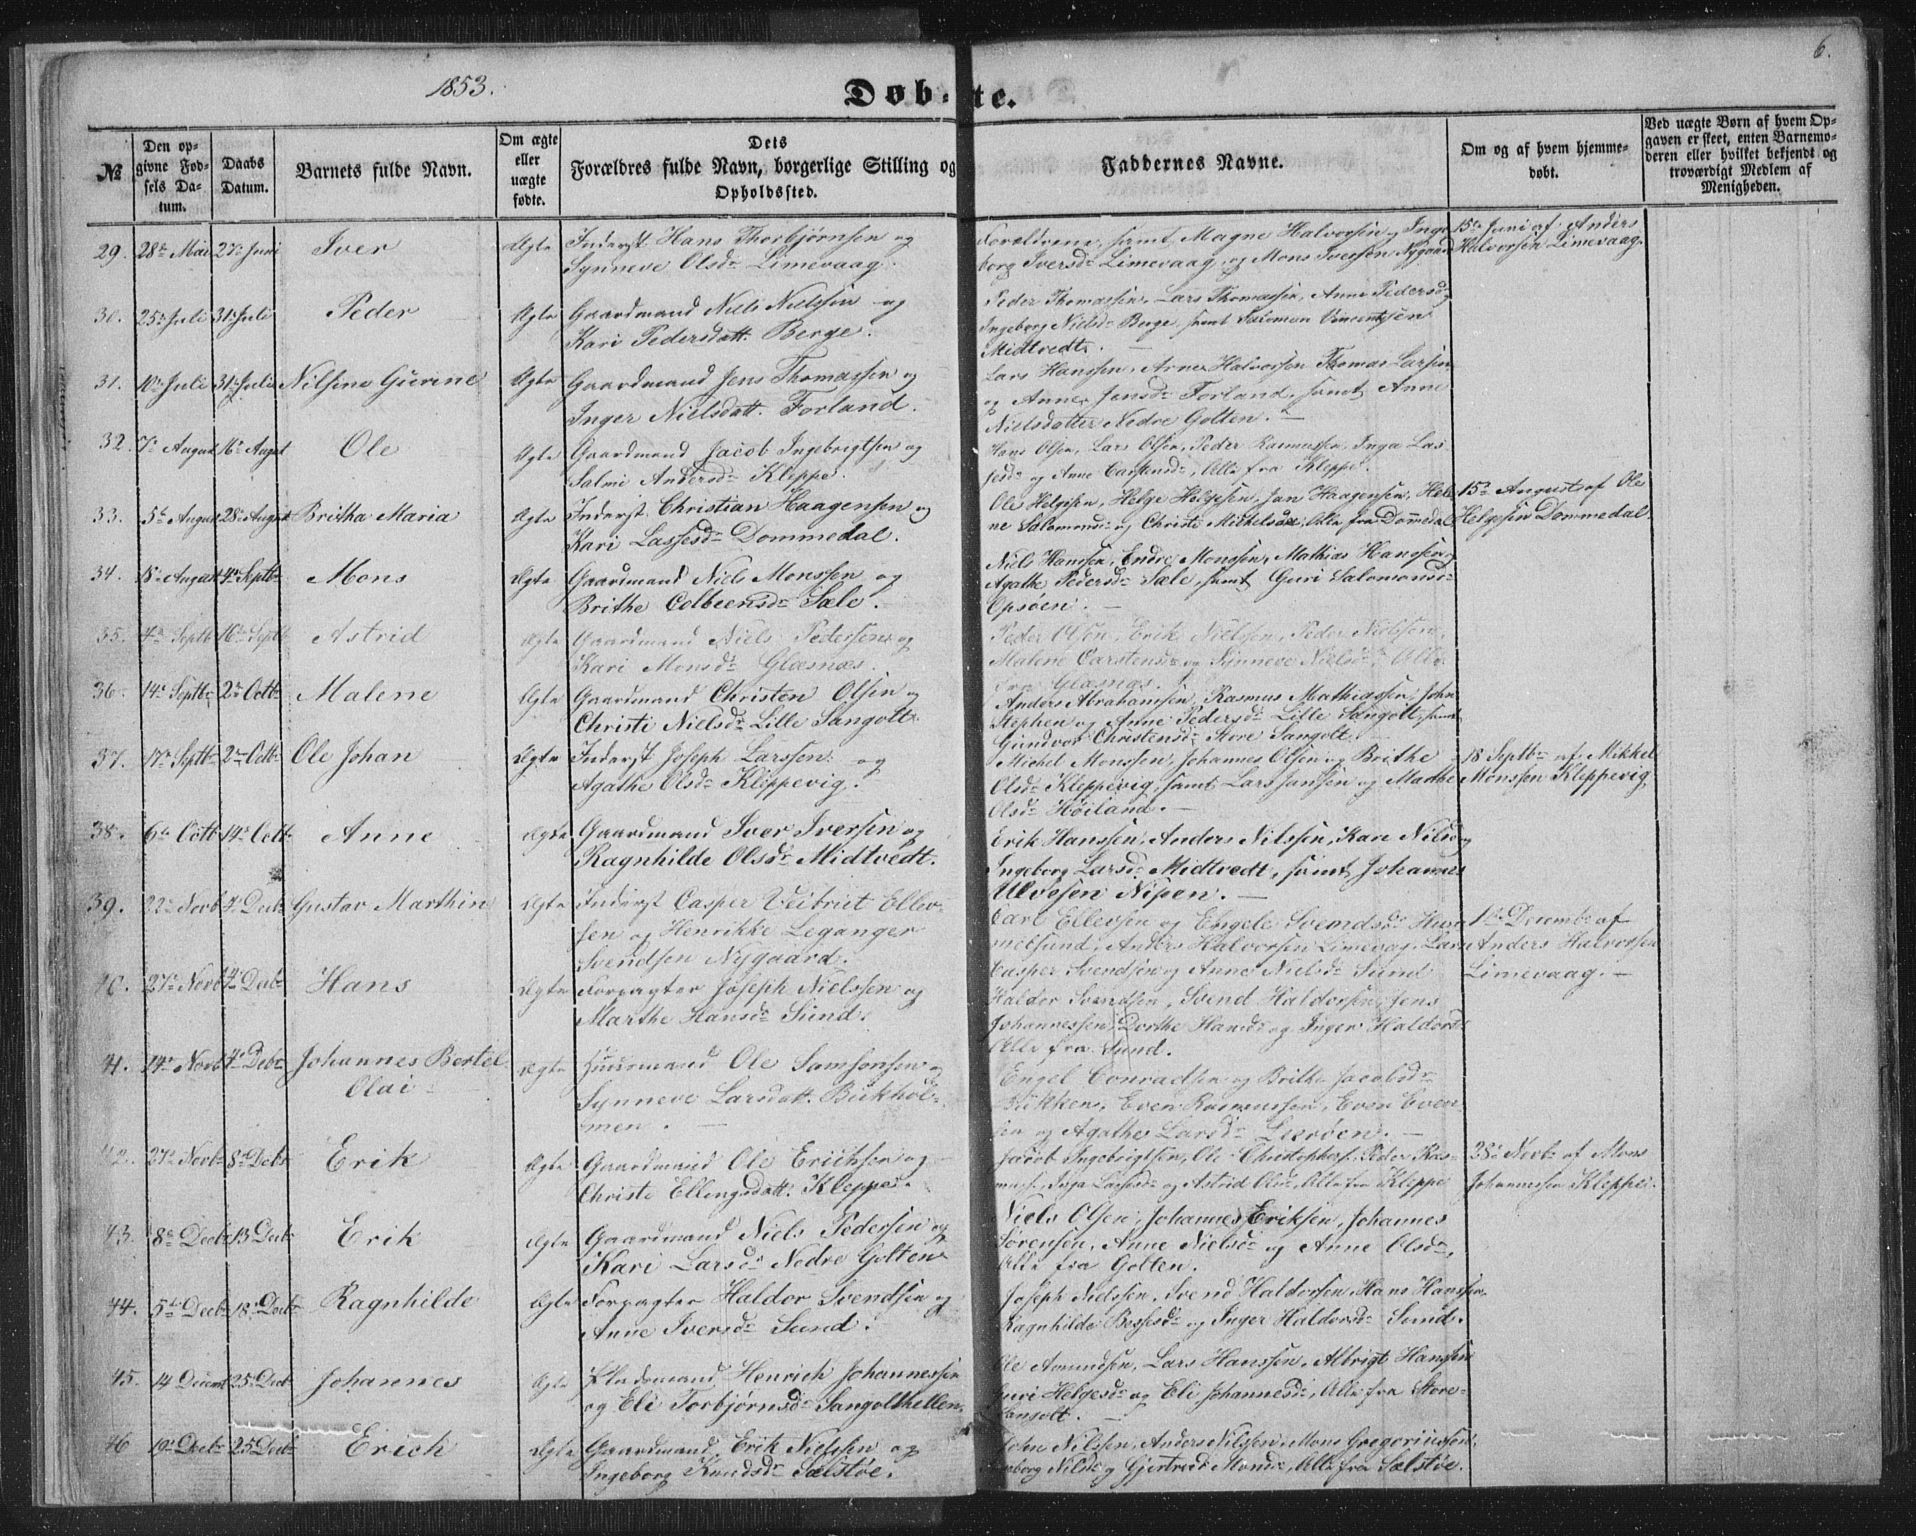 6.
1853.
Døbte.
№
Den opgivne Fødsels Datum.
Daabs Datum.
Barnets fulde Navn.
Om ægte eller uægte fødte.
Dets Forældres fulde Navn, borgerlige Stilling og Opholdssted.
Faddernes Navne.
Om og af hvem hjemmedøbt.
Ved uægte Børn af hvem Opgaven er skeet, enten Barnemoderen eller hvilket bekjendt og troværdigt Medlem af Menigheden.
29. 28de Mai 27de Juni Iver Ægte Inderst Hans Thorbjørnsen og
Synneve Olsdr Limevaag.
Forældrene, samt Magne Halvorsen, Inge-
borg Iversdr Limevaag og Mons Iversen Nygaard
15de Juni af Anders
Halvorsen Limevaag.
30. 25de Juli 31te Juli Peder Ægte Gaardmand Niels Nielssen og
Kari Pedersdatt. Berge.
Peder Thomassen, Lars Thomassen, Anna Pedersdr
Ingeborg Nielsdr Berge, samt Salomon Vincentsen
Midtvedt.
31. 10de Juli 31te Juli Nilsine Gurine Ægte Gaardmand Jens Thomassen og
Inger Nielsdatt. Forland.
Lars Hanssen, Arne Halvorsen Thomas Larsen
og Anne Jensdr Forland, samt Anne
Nielsdatter Nedre Golten.
32. 7de August 16de August Ole Ægte Gaardmand Jacob Ingebrigtsen og
Salmi Andersdr Kleppe.
Hans Olsen, Lars Olsen, Peder Rasmussen, Inga Las-
sesdr og Anne Carstensdr, Alle fra Kleppe.
33. 5te August 28de August Britha Maria Ægte Inderst Christian Haagensen og
Kari Lassesdr Dommedal.
Ole Helgesen, Helge Helgesen, Jan Haagensen, Hele-
ne Salomonsdr og Christi Michelsdr, Alle fra Dommedal
15de August af Ole
Helgesen Dommedal.
34. 18de August 4de Septbr Mons Ægte Gaardmand Niels Monssen og
Brithe Colbeensdr Sæle.
Niels Hanssen, Endre Monssen, Mathias Hanssen,
Agathe Pedersdr Sæle, samt Guri Salomonsdr
Opsøen.
35. 4de Septb 16de Septb Astrid Ægte Gaardmand Niels Pedersen og
Kari Monsdr Glæsnæs.
Peder Olsen, Erik Nielsen, Peder Nielsen,
Malene Carstensdr og Synneve Nielsdr, Alle
fra Glæsnæs.
36. 14de Septbr 2den Octbr Malene Ægte Gaardmand Christen Olsen og
Christi Nielsdr Lille Sangolt.
Anders Abrahamsen, Rasmus Mathiassen, John
Stephen og Anne Pedersdr Lille Sangolt, samt
Gundvor Christensdr Store Sangolt.
37. 17de Septbr 2den Octbr Ole Johan Ægte Inderst Joseph Larssen og
Agathe Olsdr Kleppevig.
Michel Monssen, Johannes Olsen og Brithe
Olsdr Kleppevig, samt Lars Jansen og Marthe
Olsdr Høiland.
18 Septbr af Mikkel
Monssen Kleppevig
38. 6te Octb 14de Octb Anne Ægte Gaardmand Iver Iversen og
Ragnhilde Olsdr Midtvedt.
Erik Hanssen, Anders Nilssen, Kari Nilsdr
Ingeborg Larsdr Midtvedt, samt Johannes
Nipen.
39. 22de Novb 4de Decbr Gustav Marthin Ægte Inderst Casper Ellev-
sen og Henrikke Leganger
Svendsen Nygaard.
Carl Ellevsen og Engele Svendsdr
Anders Halvorsen Limevaag, Lars
1ste Decembr af
Anders Halvorsen
Limevaag.
40. 27de Novb 4de Decbr Hans Ægte Forpagter Joseph Nielssen og
Marthe Hansdr Sund.
Casper Svendsen og Anne Nielsdr Sund
Haldor Svendsen, Svend Haldorsen, Jens
Johannessen, Dorthe Hansdr og Inger Haldorsdr
Alle fra Sund.
41. 14de Novb 4de Decbr Johannes Bertel
Olai
Ægte Huusmand Ole Samsonsen og
Synneve Larsdatt. Birkhol-
men.
Engel Conradsen og Brithe Jacobsdr
Bukken, Even Rasmussen, Even Even-
sen og Agathe Larsdr Lerøen.
42. 27de Novbr 8de Decbr Erik Ægte Gaardmand Ole Eriksen og
Christi Ellingsdatt. Kleppe.
Jacob Ingebrigtsen, Ole Christophers., Peder Ras-
muss., Inga Lassesdr og Astrid Olsdr, Alle fra Kleppe
28de Novbr af Mons
Johannessen Kleppe.
43. 8de Decbr 13 Decbr Erik Ægte Gaardmand Niels Pedersen og
Kari Larsdr Nedre Golten
Niels Olsen, Johannes Eriksen, Johannes
Sørensen, Anne Nielsdr og Anne Olsdr,
Alle fra Golten.
44. 5te Decbr 18de Decbr Ragnhilde Ægte Forpagter Haldor Svendsen og
Anne Iversdr Sund.
Joseph Nielsen, Svend Haldorsen, Hans Hanssen,
Ragnhilde Bessesdr og Inger Haldorsdr Sund.
45. 14 Decemb 25de Decb Johannes Ægte Henrich Johannessen
og Eli Torbjørnsdr Sangolthellen.
Ole Amundsen, Lars Hanssen, Albrigt Hanssen
Guri Helgesdr og Eli Johannesdr, Alle fra Store-
Sangolt.
46 19de Decbr 25 Decbr Erich Ægte Gaardmand Erik Nielssen og
Ingeborg Knudsdr Sælstøe.
John Nilssen, Anders Nilssen, Mons Gregoriussen,
Ingeborg Nilsdr og Gjertrud Monsdr, Alle fra Sælstøe.